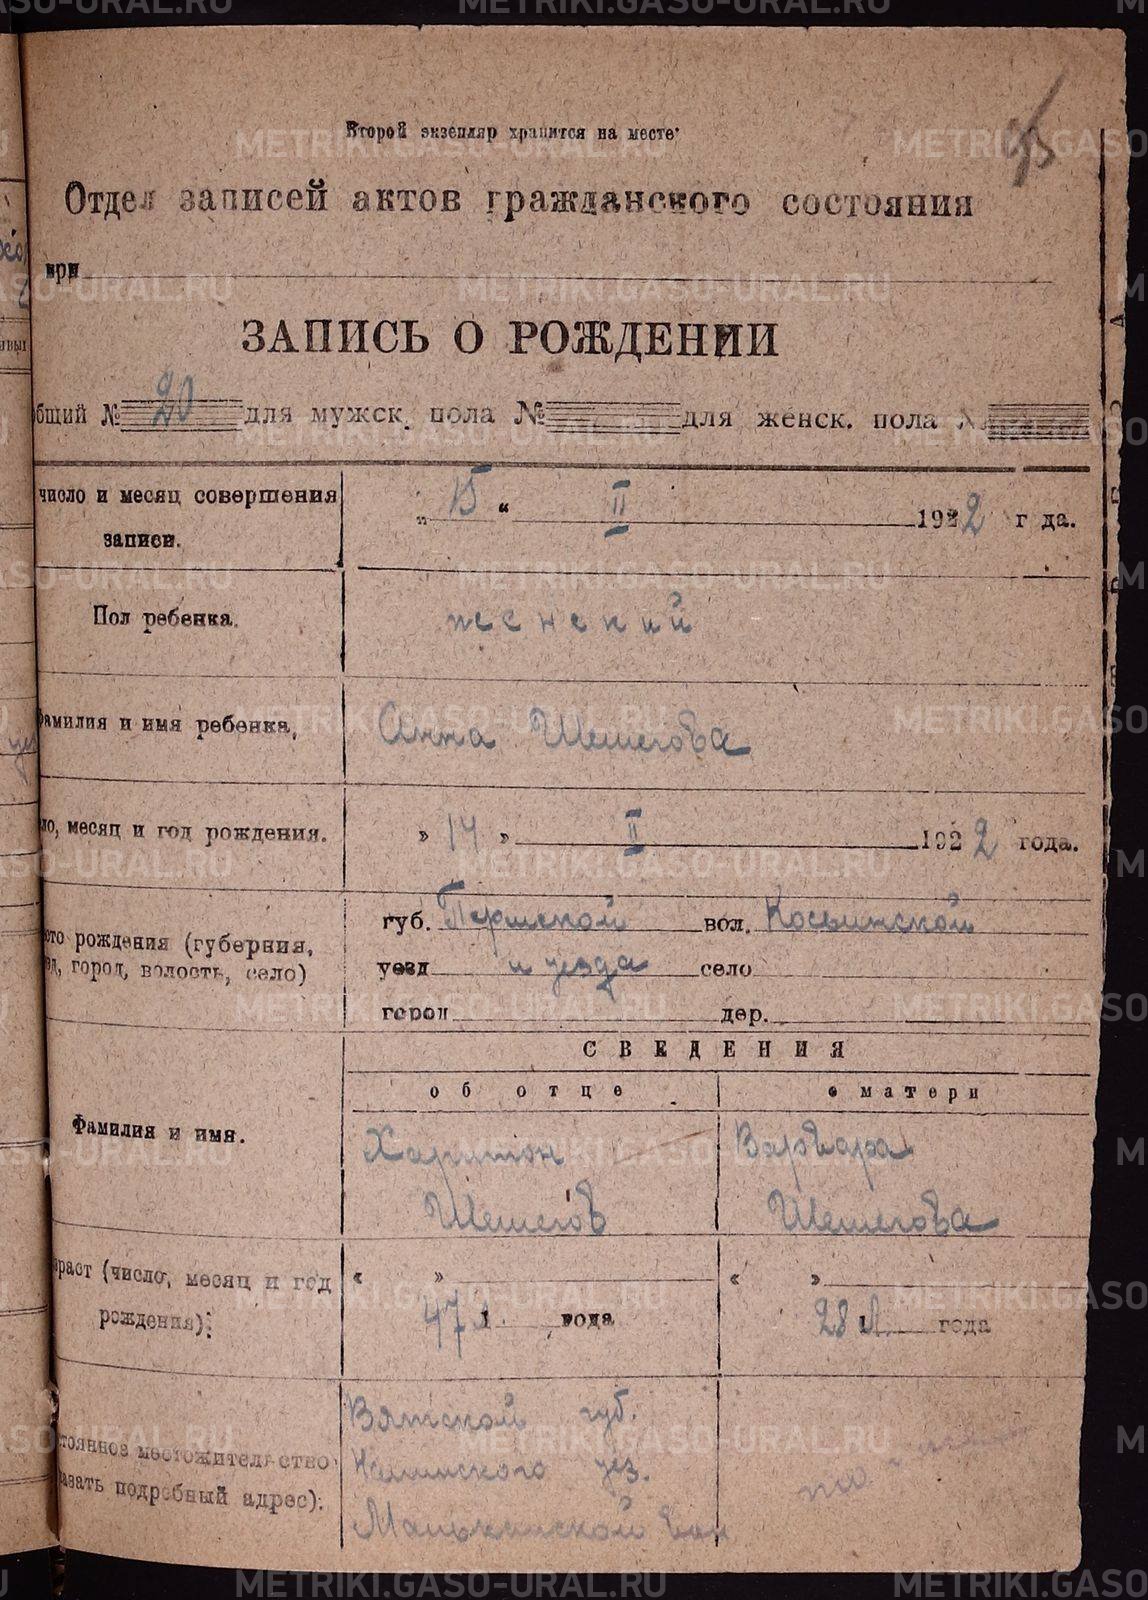 95
Второй экземпляр хранится на месте
Отдел записей актов гражданского состояния
при
ЗАПИСЬ О РОЖДЕНИИ
бщий № 20 для мужск. пола № для женск. пола №
число и месяц совершения записи.
„ 15 “ II 1922 г да.
Пол ребенка.
женский
фамилия и имя ребенка,
Анна Шешегова
ло, месяц и год рождения.
» 14 » II 1922 года.
сто рождения (губерния,
зд, город, волость, село)
губ. Пермской вол. Косьинской
уезд и уезда село
город дер.
СВЕДЕНИЯ
об отце
о матери
Фамилия и имя.
Харитон
Шешегов
Варвара
Шешегова
зраст (число, месяц и год
рождения):
« »
47 л года
« »
28 л года
стоянное местожительство
казать подробный адрес):
Вятской губ.
уез.
METRIKI.GASO-URAL.RU